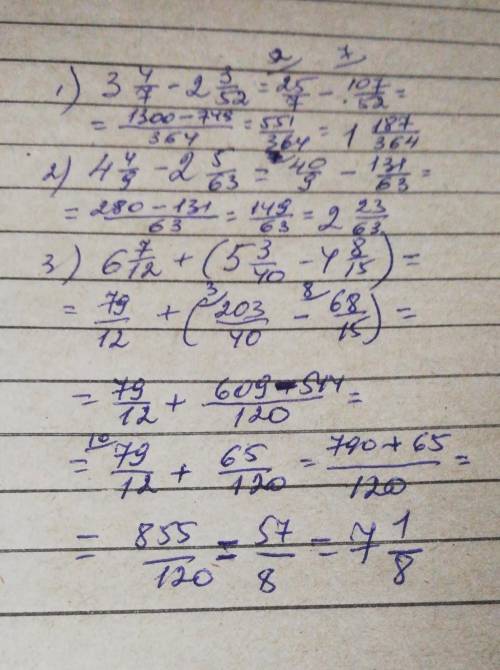 2 7
1) 3 4/7 - 2 3/52 = 25/7 - 107/52 =
= (1300 - 749)/364 = 551/364 = 1 187/364
2) 4 4/9 - 2 5/63 = 40/9 - 131/63 =
= (280 - 131)/63 = 149/63 = 2 23/63
3) 6 7/12 + (5 3/40 - 4 8/15) =
= 79/12 + (³ 203/40 - ⁸ 68/15) =
= 79/12 + (609 - 544)/120 =
= ¹⁰ 79/12 + 65/120 = (790 + 65)/120 =
= 855/120 = 57/8 = 7 1/8